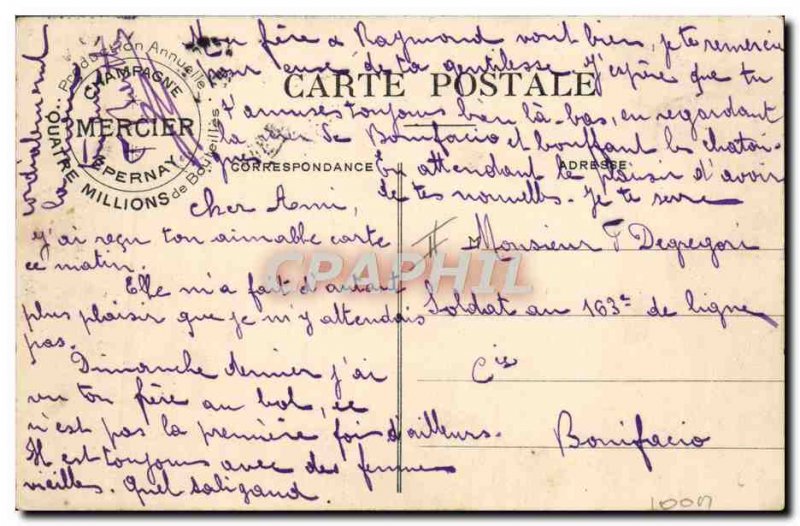 Production Annuelle
CHAMPAGNE
MERCIER
EPERNAY
QUATRE MILLIONS de Bouteilles
CARTE POSTALE
CORRESPONDANCE
ADRESSE
Cher Ami,
J'ai reçu ton aimable carte
ce matin.
Elle m'a fait d'autant
plus plaisir que je m'y attendais
pas.
Dimanche dernier j'ai
vu ton frère au bal, ce
n'est pas la première fois d'ailleurs.
Il est toujours avec des femmes
vieilles. Quel saligand.
Mon frère & Raymond vont bien, je te remercie
pour eux de ta gentillesse. J'espère que tu
t'amuses toujours bien là-bas, en regardant
la de Bonifacio et bouffant les
En attendant le plaisir d'avoir
de tes nouvelles. Je te serre
cordialement
la main
Monsieur F Degregori
Soldat au 163e de ligne
Cie
Bonifacio
CPAPHIL